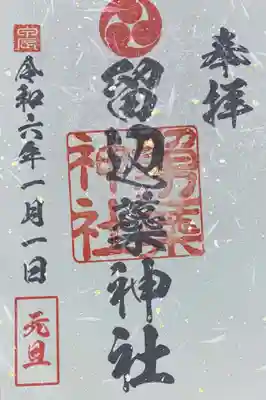 奉拝
留辺蘂神社
神社
令和六年一月一日
元旦